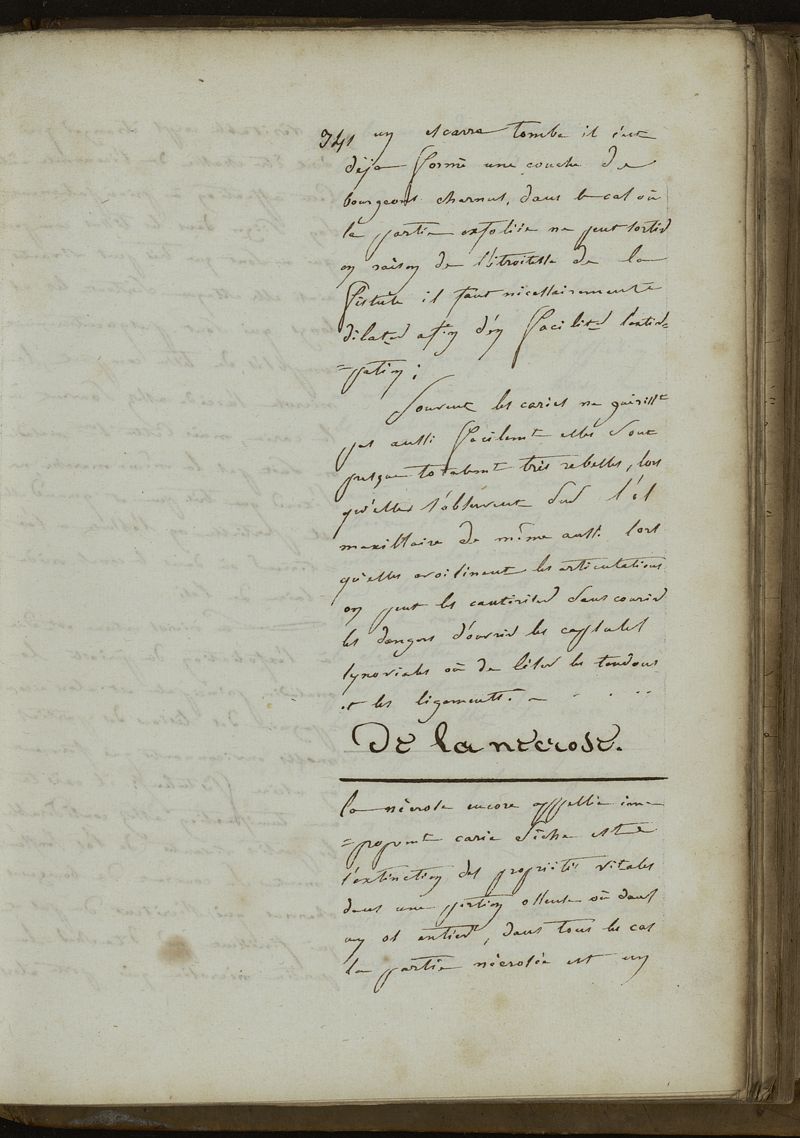 341 un escarre tombe il s'est
déja formé une couche de
bourgeons charnus, dans le cas où
la partie exfoliée ne peut sortir
en raison de l'étroitesse de la
fistule il faut nécessairement
dilater afin d'en faciliter l'extir=
=pation;
Souvent les caries ne guériss.t
pas aussi facilem.t elles sont
presque totalem.t très rebelles, lors
qu'elles s'observent sur l'os
maxillaire de même aussi lors
qu'elles avoisinent les articulations
on peut les cautériser sans courir
les dangers d'ouvrir les capsules
synoviales où de léser les tendons
et les ligements.
De la necrose.
la nécrose encore appellée im=
=proprem.t carie sèche est
l'extinction des propriétés vitales
dans une portion osseuse où dans
un os entier, dans tous les cas
la partie nécrosée est un